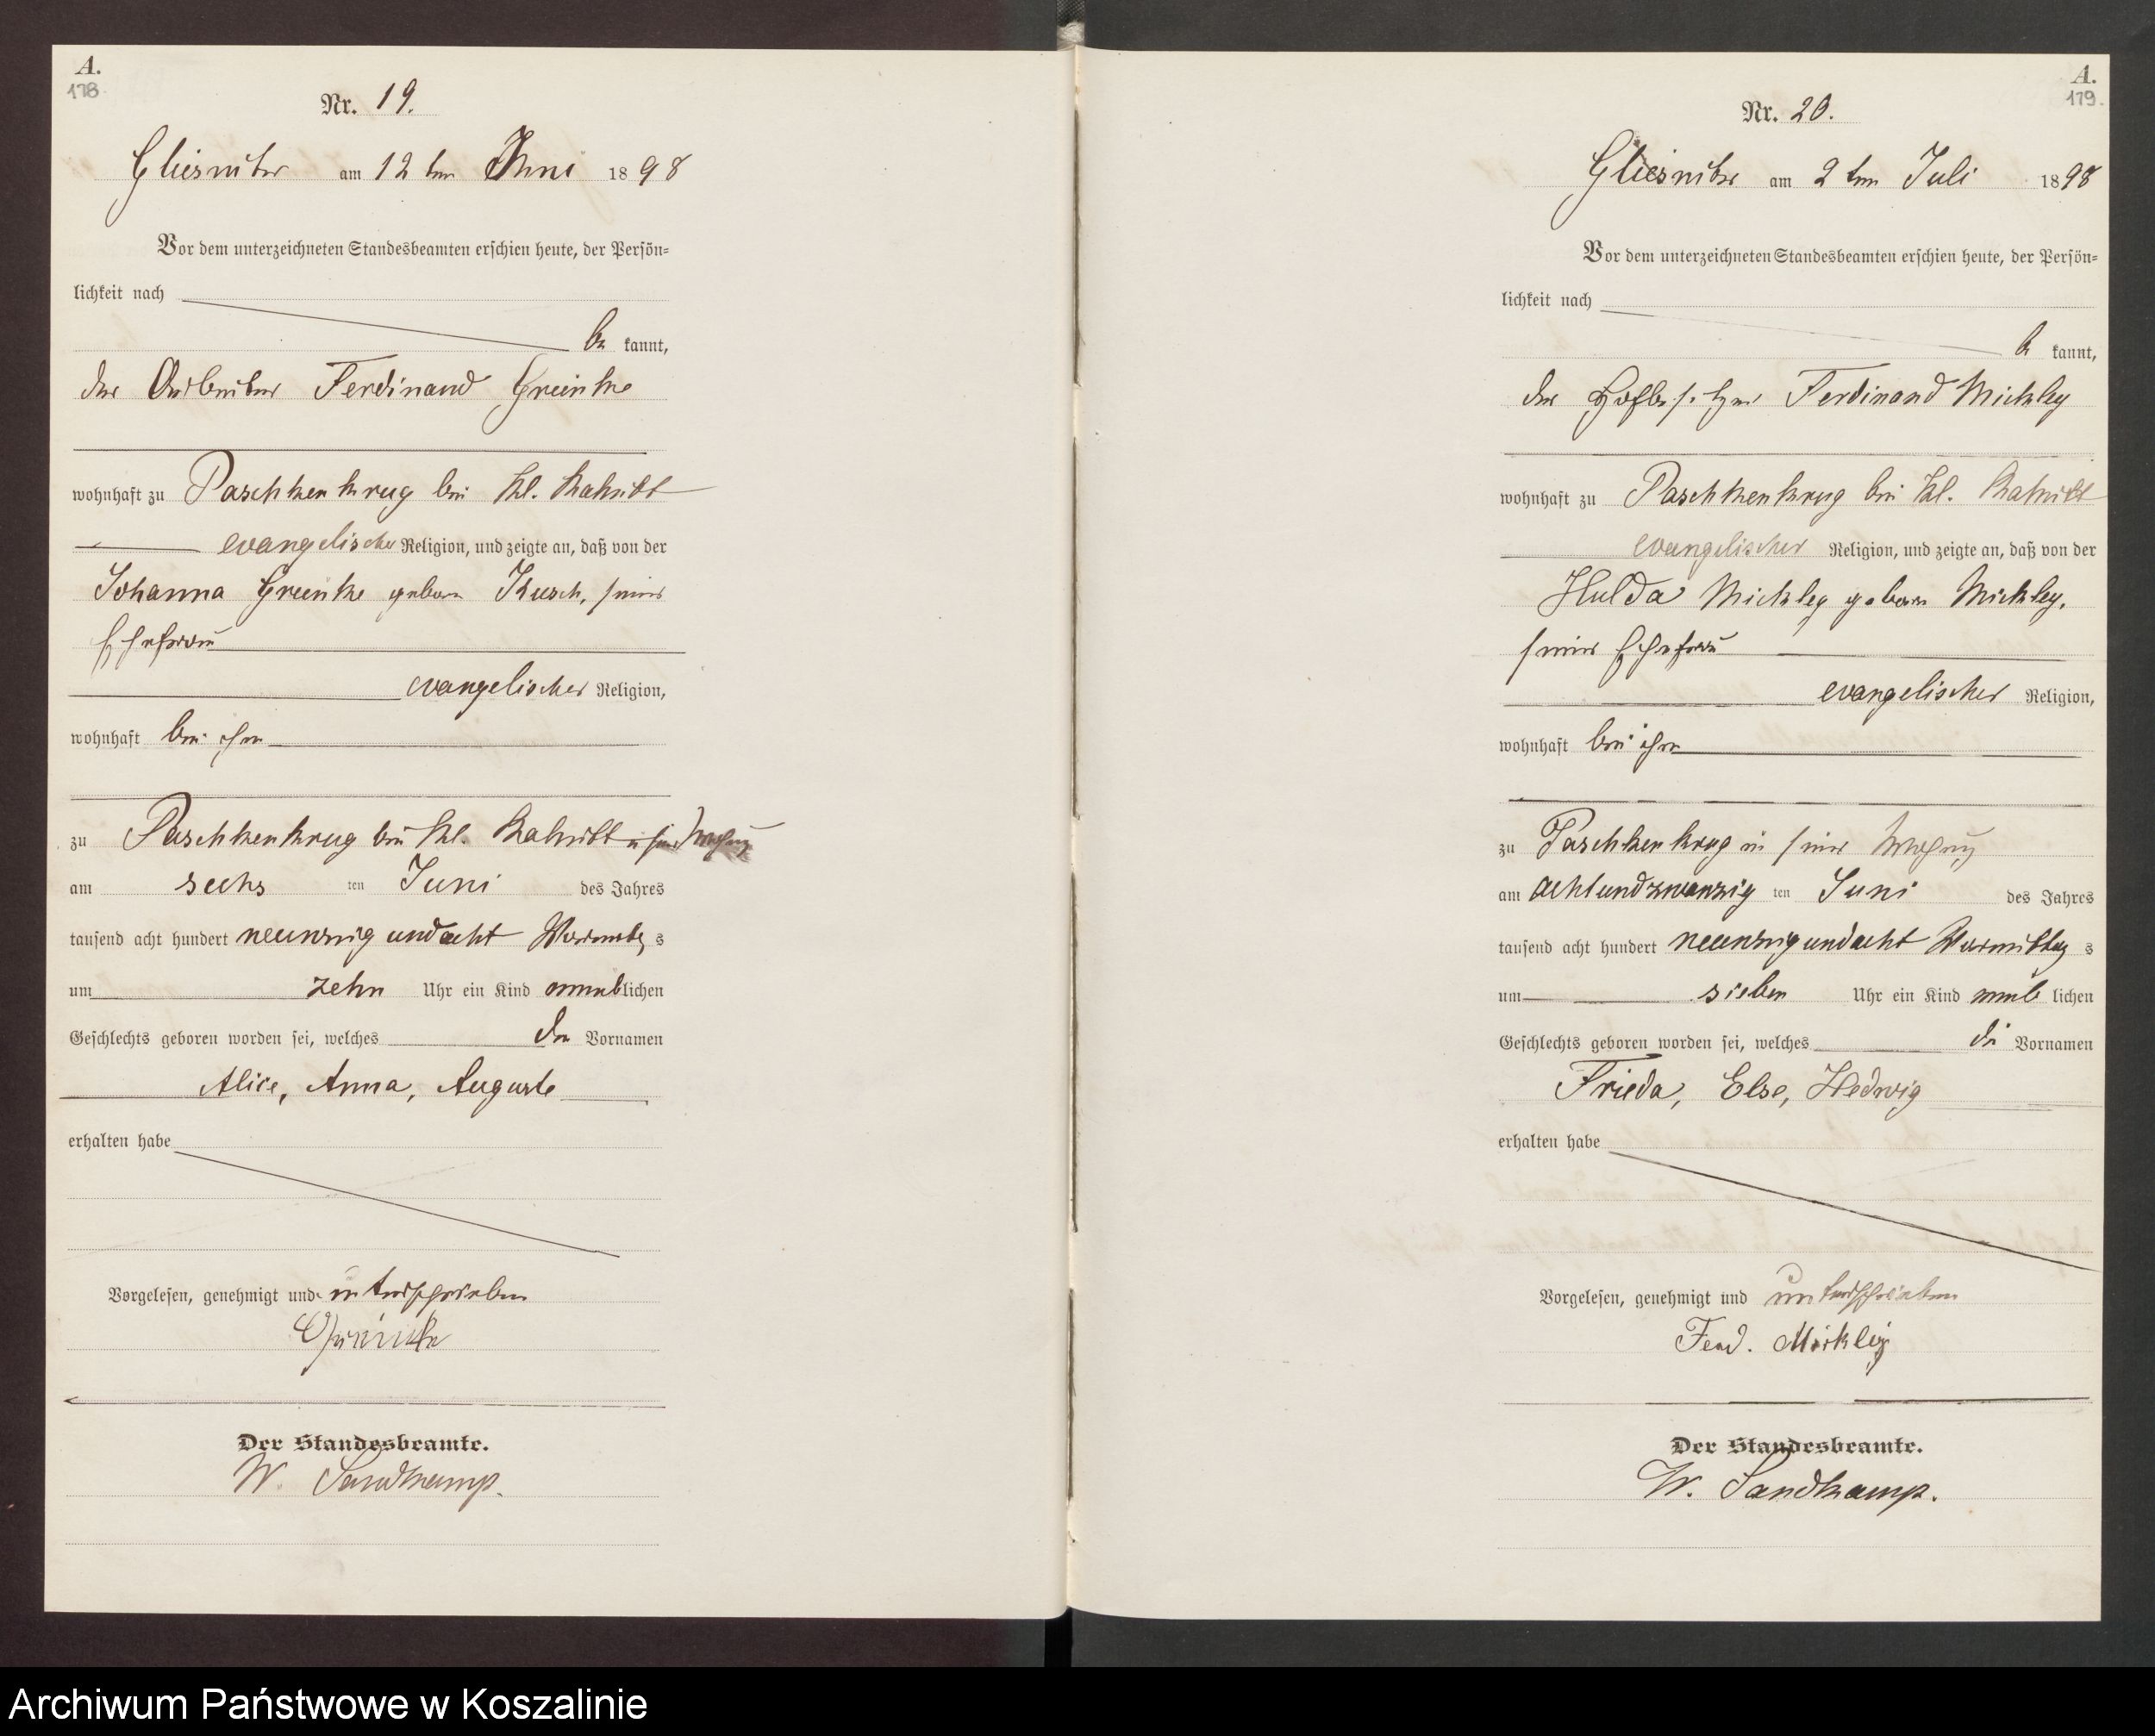 A.
178
Nr. 19.
Gliesnitz am 12 ten Juni 1898
Vor dem unterzeichneten Standesbeamten erschien heute, der Persön-
lichkeit nach
be kannt,
der Arbeiter Ferdinand Greinke
wohnhaft zu Paschkenkrug bei Kl.
evangelischer Religion, und zeigte an, daß von der
Johanna Greinke geborene Kusch, seiner
Ehefrau
evangelischer Religion,
wohnhaft bei ihm
zu Paschkenkrug bei Kl. in seiner Wohnung
am sechs ten Juni des Jahres
tausend acht hundert neunzig und acht Vormittags
um zehn Uhr ein Kind weiblichen
Geschlechts geboren worden sei, welches die Vornamen
Alice, Anna, Auguste
erhalten habe
Vorgelesen, genehmigt und unterschrieben
Greinke
Der Standesbeamte.
W. Sandkamp.
A.
179.
Nr. 20.
Gliesnitz am 2 ten Juli 1898
Vor dem unterzeichneten Standesbeamten erschien heute, der Persön-
lichkeit nach
be kannt,
der Hofbesitzer Ferdinand Mickley
wohnhaft zu Paschkenkrug bei Kl.
evangelischer Religion, und zeigte an, daß von der
Hulda Mickley geborene Mickley,
seiner Ehefrau
evangelischer Religion,
wohnhaft bei ihm
zu Paschkenkrug in seiner Wohnung
am achtundzwanzig ten Juni des Jahres
tausend acht hundert neunzig und acht Vormittags
um sieben Uhr ein Kind weib lichen
Geschlechts geboren worden sei, welches die Vornamen
Frieda, Else, Hedwig
erhalten habe
Vorgelesen, genehmigt und unterschrieben
Ferd. Mickley
Der Standesbeamte.
W. Sandkamp.
Archiwum Państwowe w Koszalinie